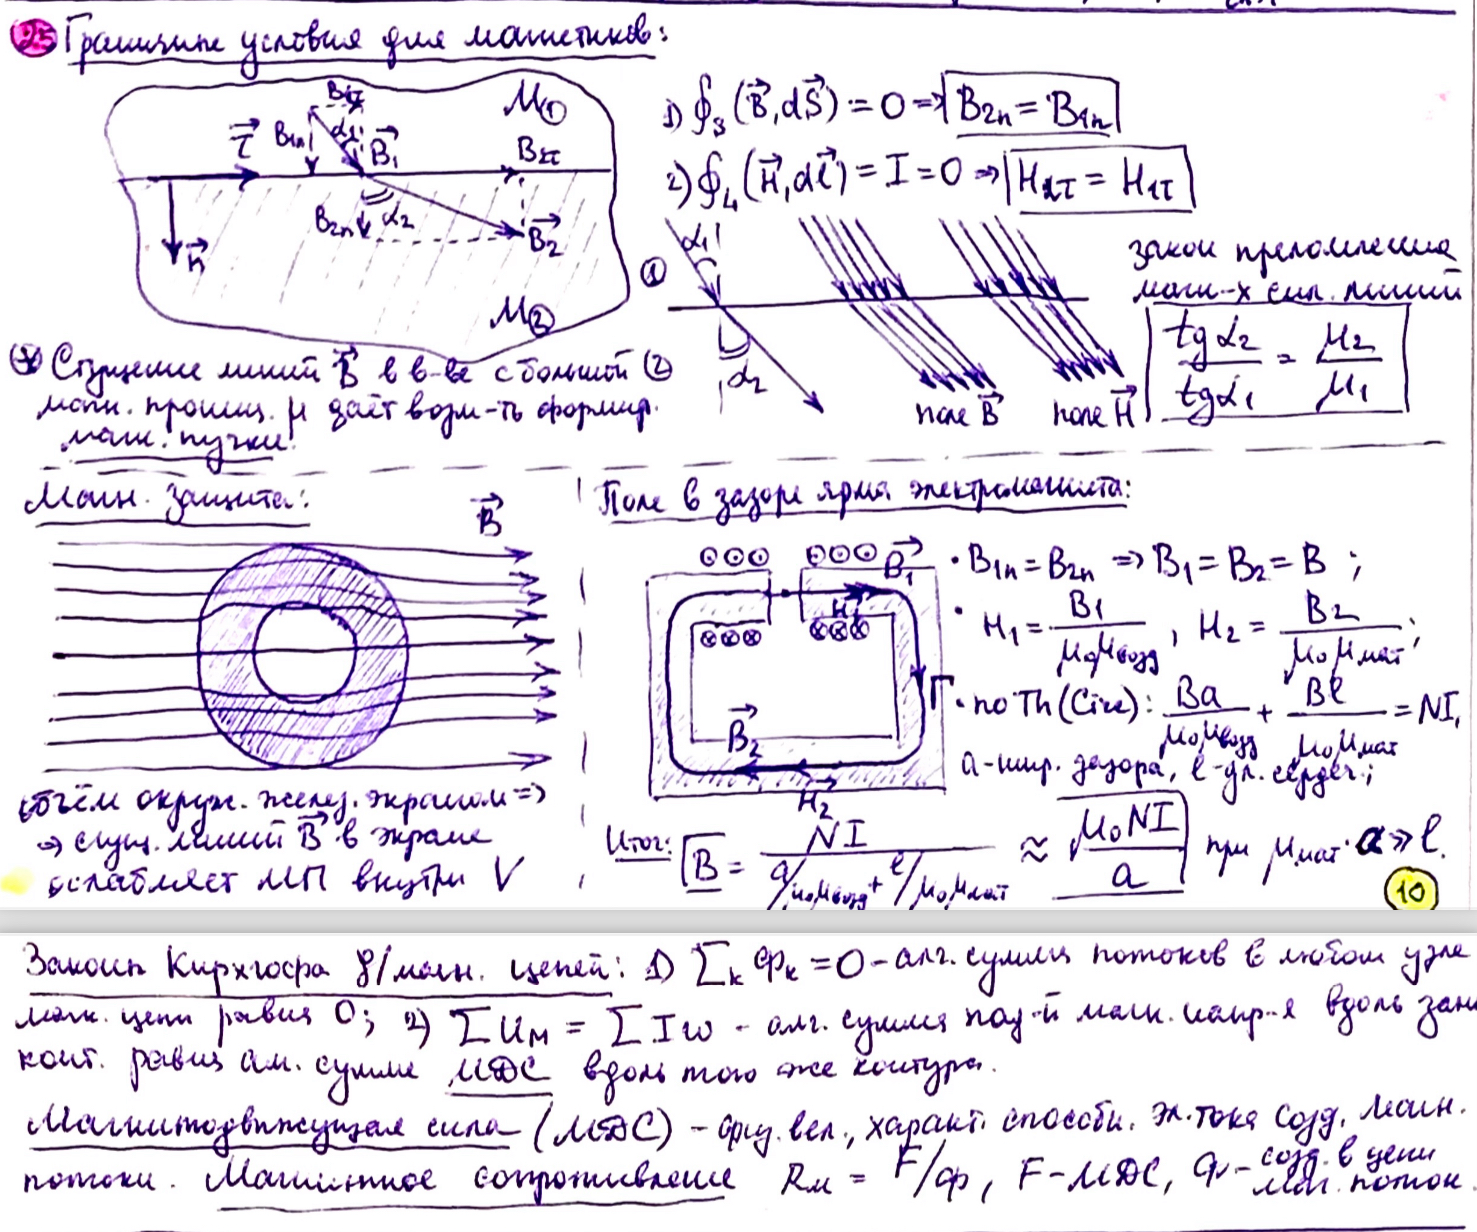 25 Граничные условия для магнетиков:
M① B1τ B1n α1 B⃗1 τ⃗ B2τ
n⃗ B2n α2 B⃗2 M②
1) ∮S (B⃗, dS⃗) = 0 ⇒ B2n = B1n
2) ∮L (H⃗, dl⃗) = I = 0 ⇒ H2τ = H1τ
① α1 ② α2 поле B⃗ поле H⃗
закон преломления
магн-х сил. линий
tgα2/tgα1 = μ2/μ1
Сгущение линий B⃗ в в-ве с большой
магн. прониц. μ даёт возм-ть формир.
магн. пучки!
Магн. защита:
B⃗
объём окруж. желез. экраном ⇒
⇒ сгущ. линий B⃗ в экране
ослабляет МП внутри V
Поле в зазоре ярма электромагнита:
B⃗1 H1 Γ B⃗2 H2
· B1n = B2n ⇒ B1 = B2 = B ;
· H1 = B1/μ0μвозд , H2 = B2/μ0μмат ;
· по Th(Circ): Ba/μ0μвозд + Bl/μ0μмат = NI,
a-шир. зазора, l-дл. сердеч.;
Итог: B = NI / (a/μ0μвозд + l/μ0μмат) ≈ μ0NI/a при μмат·a ≫ l.
10
Законы Кирхгофа д/магн. цепей: 1) ∑k Фk = 0 - алг. сумма потоков в любом узле
магн. цепи равна 0; 2) ∑Uм = ∑Iw - алг. сумма пад-й магн. напр-я вдоль замк
конт. равна алг. сумме МДС вдоль того же контура.
Магнитодвижущая сила (МДС) - физ. вел., характ. способн. эл. тока созд. магн.
потоки. Магнитное сопротивление Rм = F/Ф, F-МДС, Ф- созд. в цепи
маг. поток.